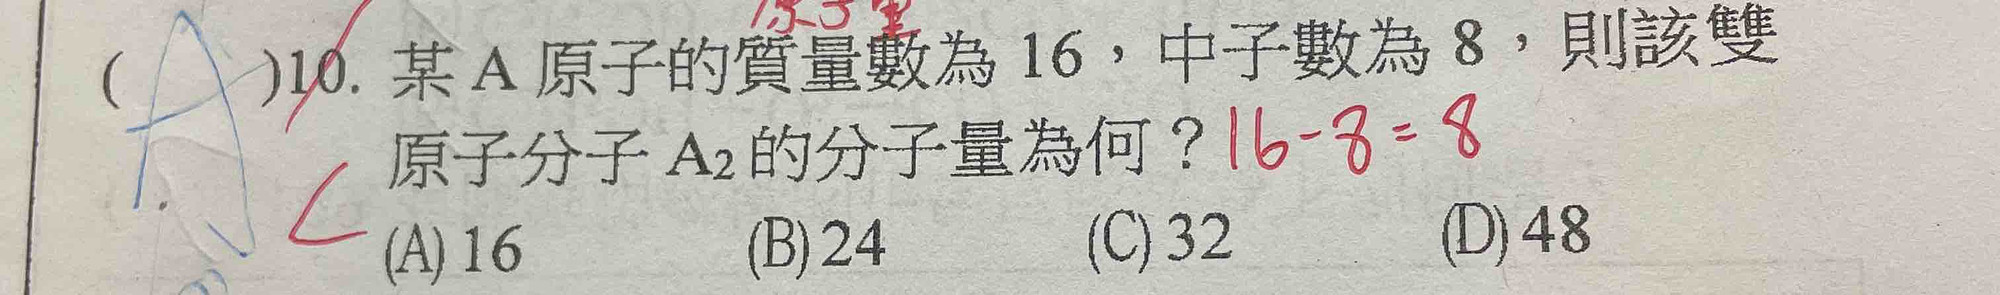 原子量
( A )10. 某 A 原子的質量數為 16，中子數為 8，則該雙
原子分子 A₂ 的分子量為何？16-8=8
C
(A) 16 (B) 24 (C) 32 (D) 48